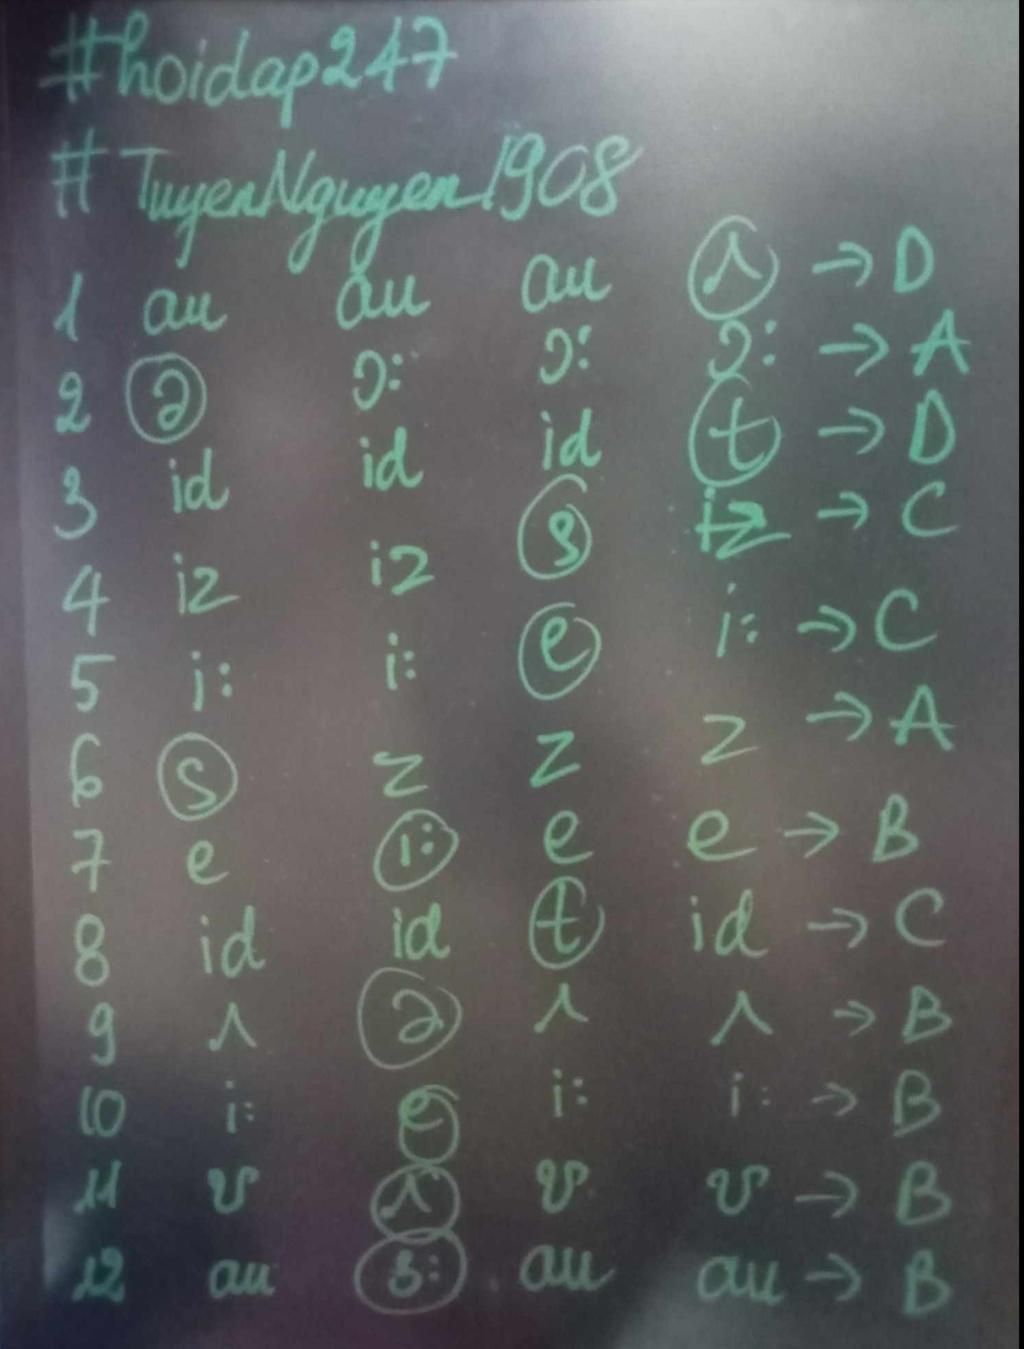 #hoidap247
#TuyenNguyen1908
1 au au au ʌ → D
2 ə ɔ: ɔ: ɔ: → A
3 id id id t → D
4 iz iz s iz → C
5 i: i: e i: → C
6 s z z z → A
7 e i: e e → B
8 id id t id → C
9 ʌ ə ʌ ʌ → B
10 i: e i: i: → B
11 ʊ ʌ ʊ ʊ → B
12 au ɜ: au au → B